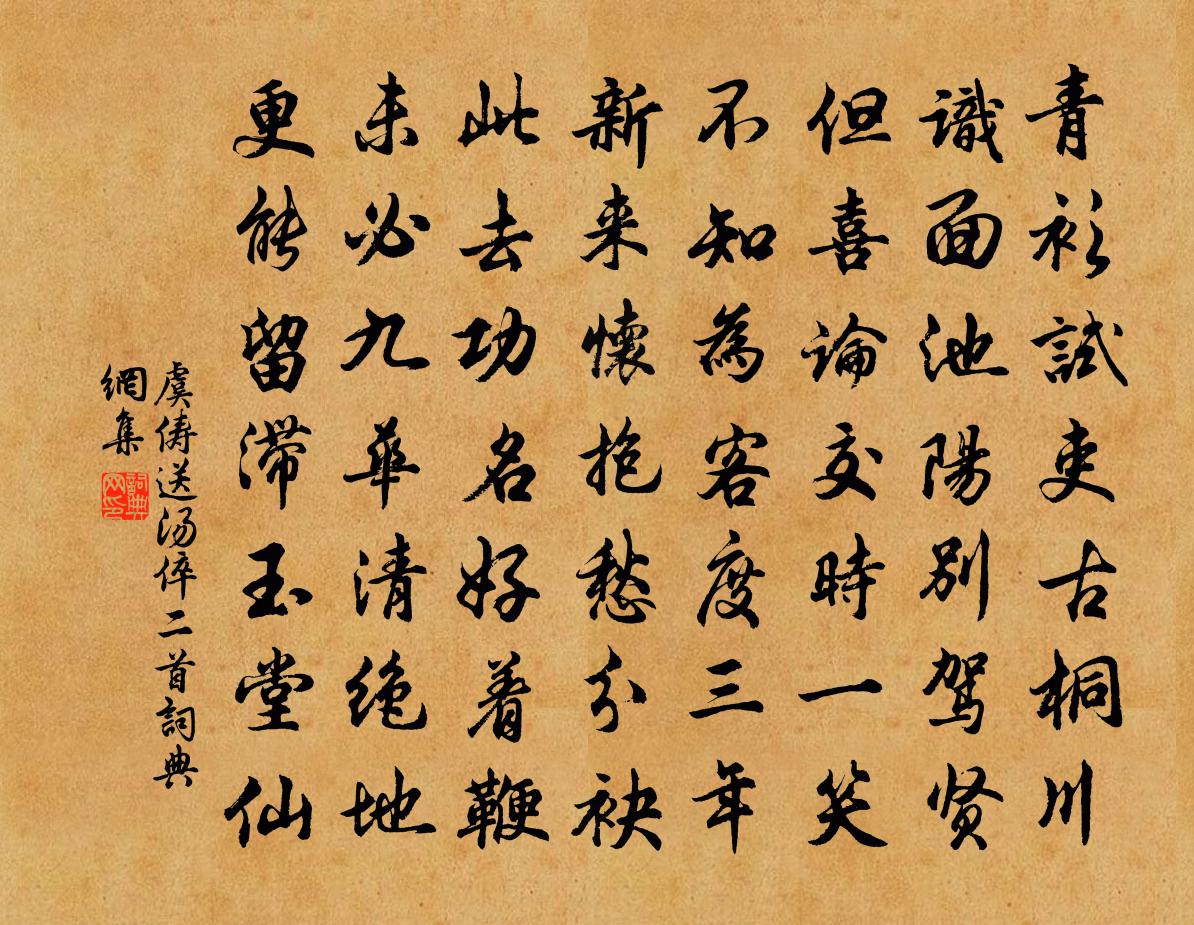 青衫試吏古桐川
識面池陽別駕贤
但喜論交時一笑
不知為客度三年
新来懷抱愁分袂
此去功名好着鞭
未必九華清絶地
更能留滞玉堂仙
虞儔送汤倅二首詞典
網集
詞典
网印